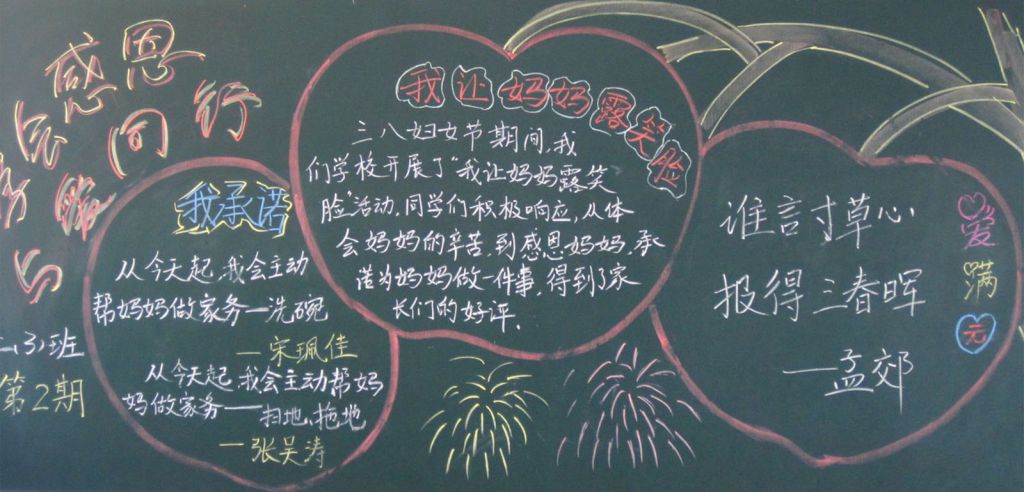 感恩
同行
我承诺
从今天起,我会主动
帮妈妈做家务—洗碗
—宋珮佳
从今天起,我会主动帮妈
妈做家务——扫地、拖地
—张吴涛
3)班
第2期
我让妈妈露笑脸
三八妇女节期间,我
们学校开展了“我让妈妈露笑
脸”活动,同学们积极响应,从体
会妈妈的辛苦,到感恩妈妈,承
诺为妈妈做一件事,得到了家
长们的好评.
谁言寸草心
报得三春晖
—孟郊
爱满元